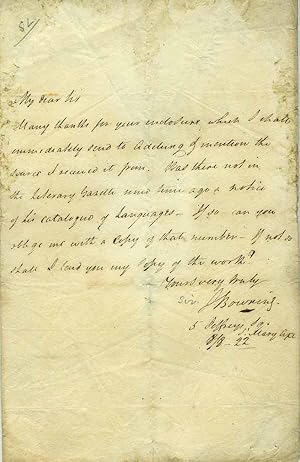 51
My dear Sir
Many thanks for your enclosure which I shall
immediately send to Adelung & mention the
source I received it from. Was there not in
the Literary Gazette some time ago a notice
of his catalogue of Languages - If so - can you
oblige me with a Copy of that number - If not so
shall I lend you my copy of the work?
Yours very truly
Sir J Bowring.
5 Jeffreys Sq.
St Mary Axe
22